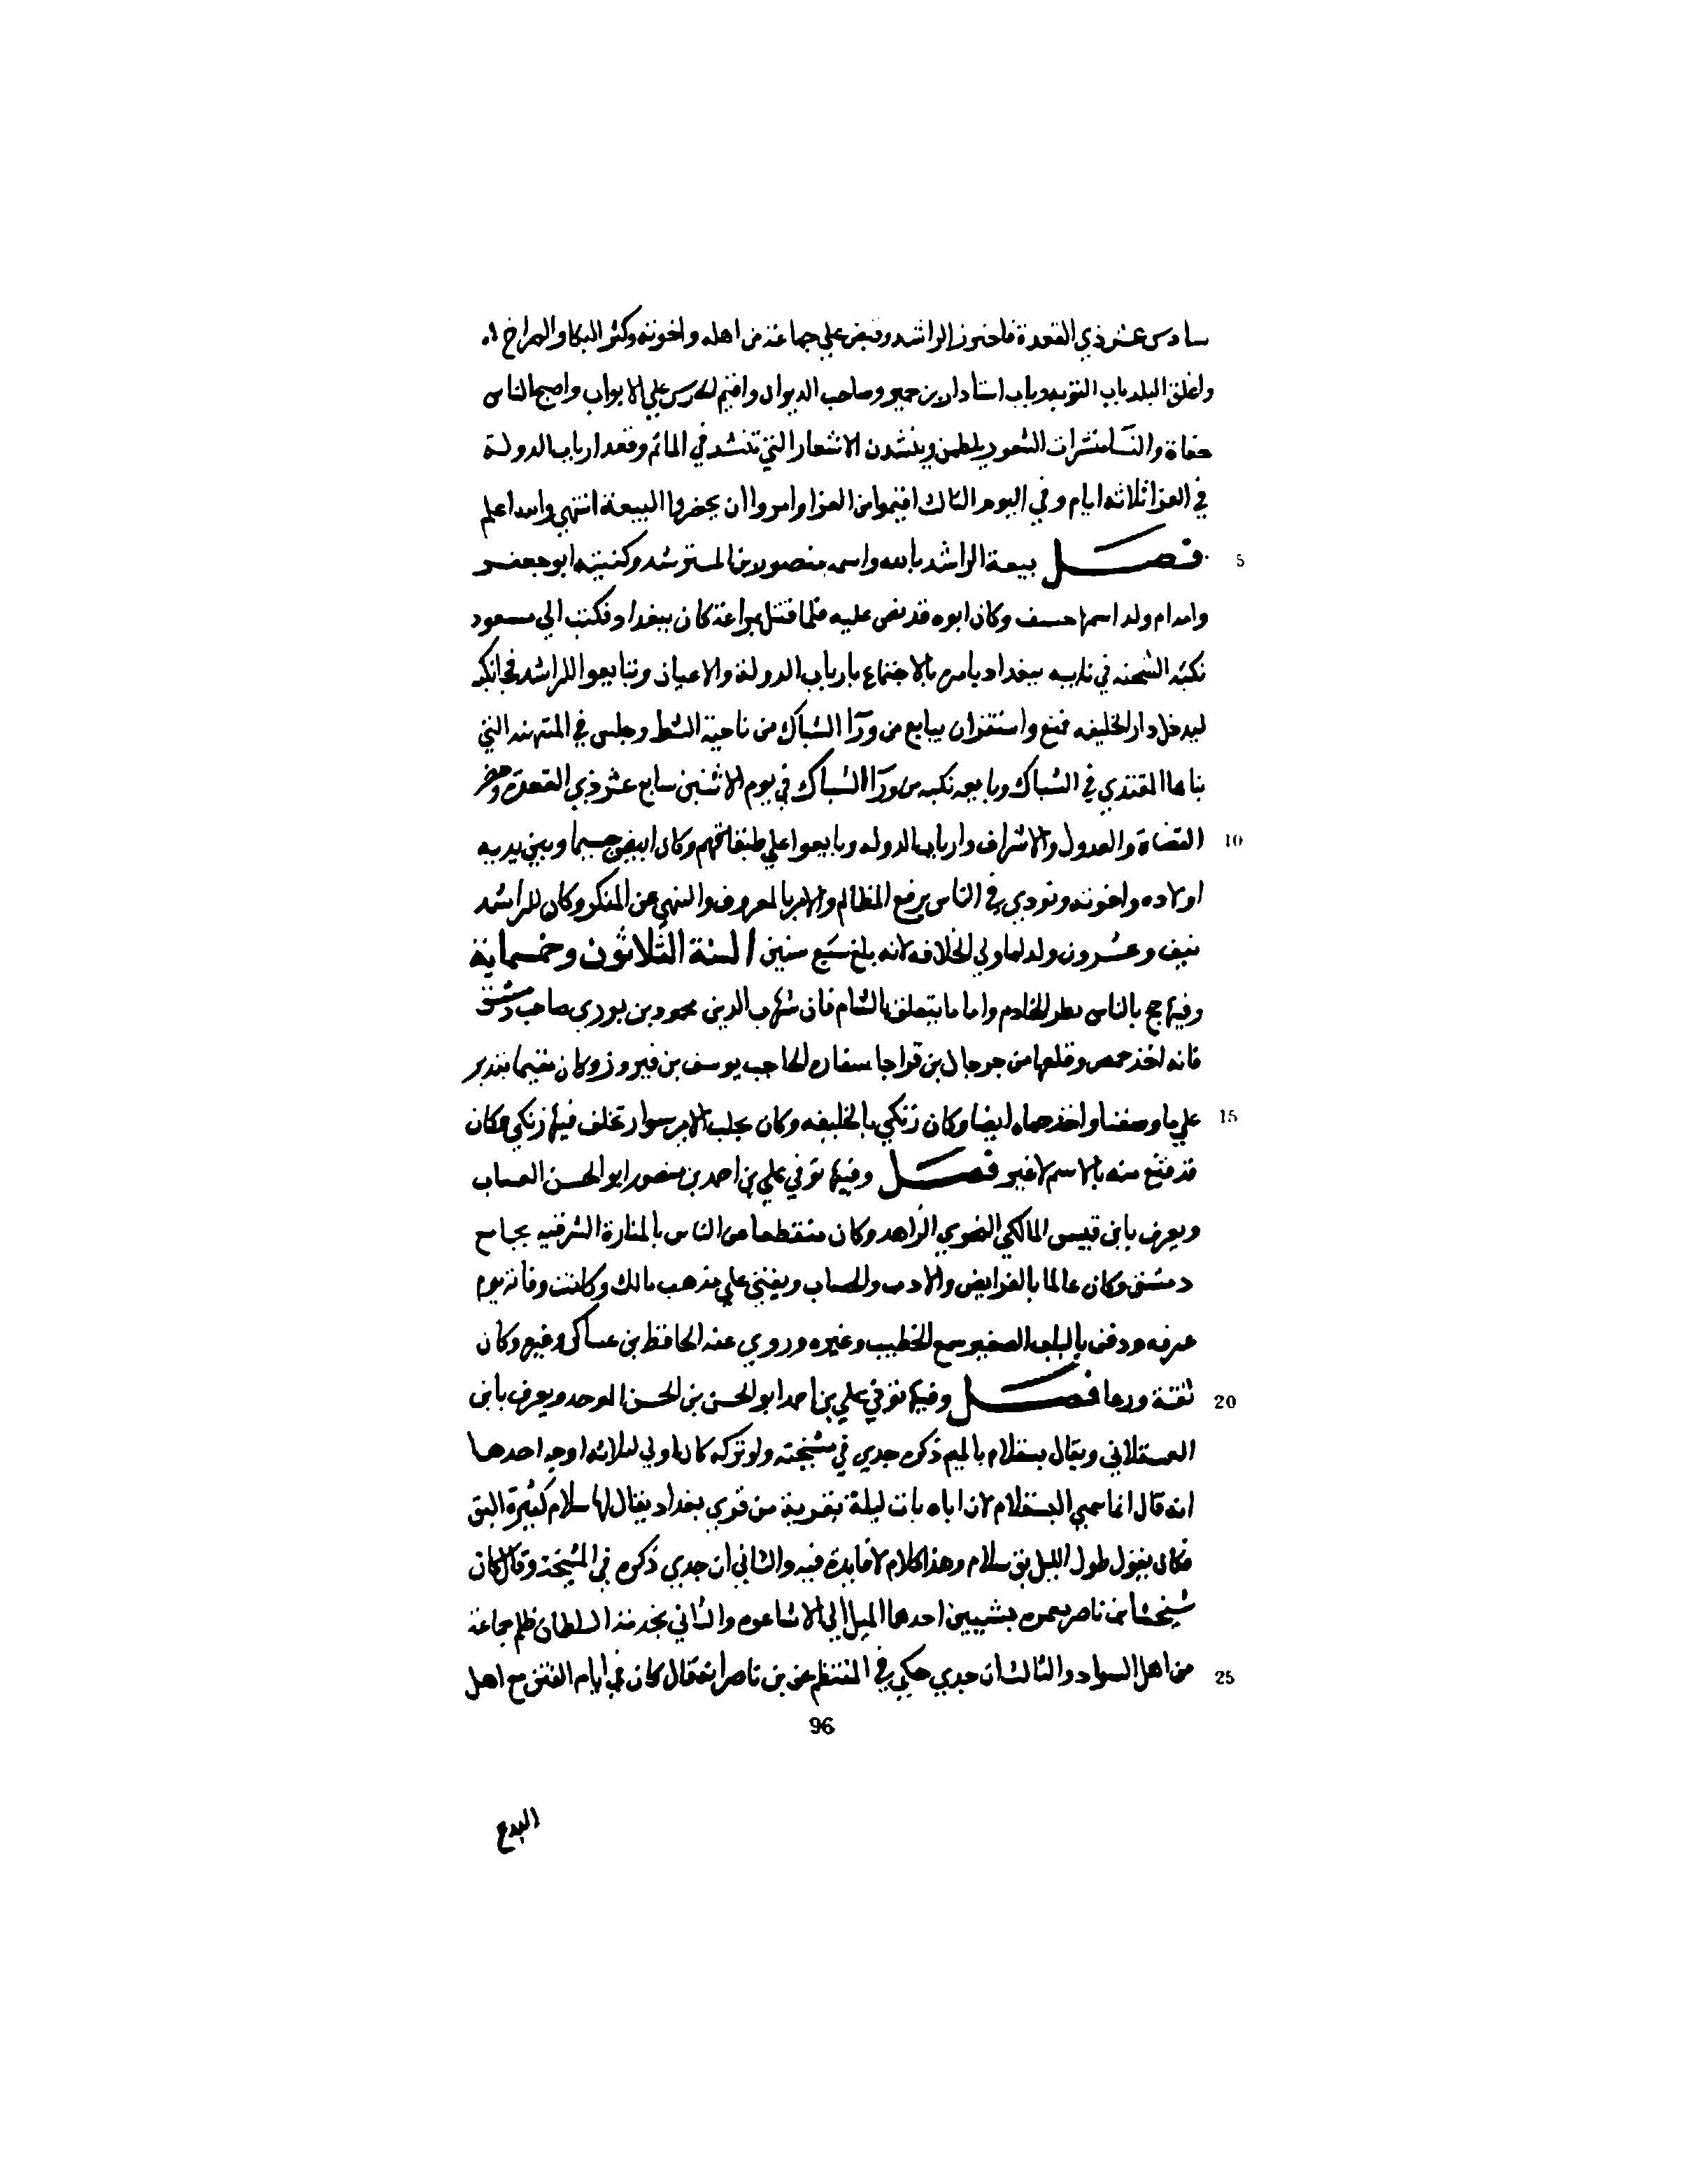 سادس عشر ذي القعدة فاحترز الراشد وقبض علي جماعة من اهله واخوته وكثر البكا والصراخ
واغلق البلد باب النوبي وباب استاداار بن جهير وصاحب الديوان واقيم الحرس علي الابواب واصبح الناس
حفاة والنسا منشرات الشعور يلطمن وينشدن الاشعار التي تنشد في الماتم وقعد ارباب الدولة
في العزا ثلاثه ايام وفي اليوم الثالث اقيموا من العزا وامروا ان يحضروا البيعة انتهي والله اعلم
5 فصل بيعة الراشد بالله واسمه منصور بن المسترشد وكنيته ابو جعفر
وامه ام ولد اسمها خسف وكان ابوه قد نص عليه فلما قتل بمراغة كان ببغداد فكتب الي مسعود
نكبه الشحنه في نايبه ببغداد يامره بالاجتماع بارباب الدولة والاعيان وتبايعوا للراشد فجا نكبه
ليدخل دار الخليفه فمنع واستقر ان يبايع من ورآ الشباك من ناحية الشط وجلس في المثمنه التي
بناها المقتدي في الشباك وبايعه نكبه من ورآ الشباك في يوم الاثنين سابع عشر ذي القعدة وحضر
10 القضاة والعدول والاشراف وارباب الدوله وبايعوا علي طبقاتهم وكان ابيض جسيما وبين يديه
اولاده واخوته ونودي في الناس برفع المظالم والامر بالمعروف والنهي عن المنكر وكان للراشد
نيف وعشرون ولد لما ولي الخلافه لانه بلغ سبع سنين السنة الثلاثون وخمسماية
وفيها حج بالناس نظر الخادم واما ما يتعلق بالشام فان شهاب الدين محمود بن بوري صاحب دمشق
فانه اخذ حمص وقلعها من جرجال بن قراجا بسفارة الحاجب يوسف بن فيروز وكان مقيما بتدمر
15 علي ما وصفنا واخذ حماه ايضا وكان زنكي بالخليفه وكان بحلب الامير سوار تخلف فيها زنكي وكان
قد قنع منه بالاسم لا غير فصل وفيها توفي علي بن احمد بن منصور ابو الحسن الغساب
ويعرف بابن قبيس المالكي النحوي الزاهد وكان منقطعا عن الناس بالمنارة الشرقيه بجامع
دمشق وكان عالما بالفرايض والادب والحساب ويفتي علي مذهب مالك وكانت وفاته يوم
عرفه ودفن بالباب الصغير سمع الخطيب وغيره وروي عنه الحافظ بن عساكر وغيره وكان
20 ثقة ورعا فصل وفيها توفي علي بن احمد ابو الحسن بن الحسن الموحد ويعرف بابن
العسقلاني ويقال بسقلام بالميم ذكره جدي في مشيخته ولو تركه كان اولي لثلاثه اوجه احدها
انه قال انما سمي البسقلام لان اباه بات ليلة بقرية من قري بغداد يقال لها سلام كثيرة البق
فكان يقول طول الليل بق سلام وهذا كلام لا فايدة فيه والثاني ان جدي ذكره في المشيخة وقال كان
شيخنا بن ناصر يعمره بشيين احدهما الميل الي الاشاعره والثاني بخدمته السلطان ظلم جماعة
25 من اهل السواد والثالث ان جدي حكي في المنتظم عن بن ناصر انه قال كان في ايام الفتن مع اهل
96
البدع